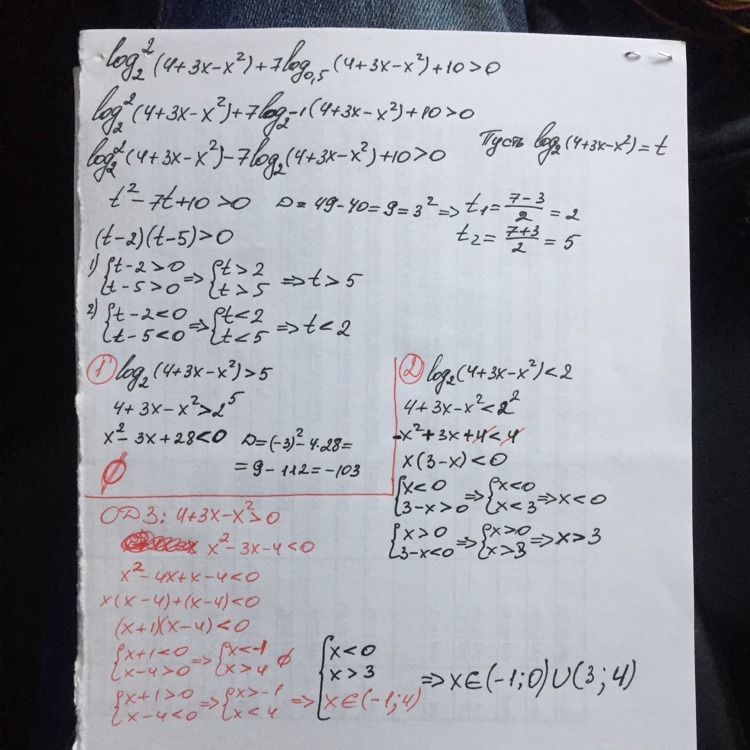 log₂²(4+3x-x²)+7log₀,₅(4+3x-x²)+10>0
log₂²(4+3x-x²)+7log₂-1(4+3x-x²)+10>0
log₂²(4+3x-x²)-7log₂(4+3x-x²)+10>0
Пусть log₂(4+3x-x²)=t
t²-7t+10>0 D=49-40=9=3² => t₁=(7-3)/2=2
(t-2)(t-5)>0 t₂=(7+3)/2=5
1) {t-2>0 => {t>2 => t>5
t-5>0 t>5
2) {t-2<0 => {t<2 => t<2
t-5<0 t<5
① log₂(4+3x-x²)>5
4+3x-x²>2⁵
x²-3x+28<0 D=(-3)²-4·28=
=9-112=-103
∅
② log₂(4+3x-x²)<2
4+3x-x²<2²
-x²+3x+4<4
x(3-x)<0
{x<0 => {x<0 => x<0
3-x>0 x<3
{x>0 => {x>0 => x>3
3-x<0 x>3
ОДЗ: 4+3x-x²>0
x²-3x-4<0
x²-4x+x-4<0
x(x-4)+(x-4)<0
(x+1)(x-4)<0
{x+1<0 => {x<-1 ∅
x-4>0 x>4
{x+1>0 => {x>-1 =>
x-4<0 x<4
{x<0
x>3
x∈(-1;4)
=> x∈(-1;0)∪(3;4)